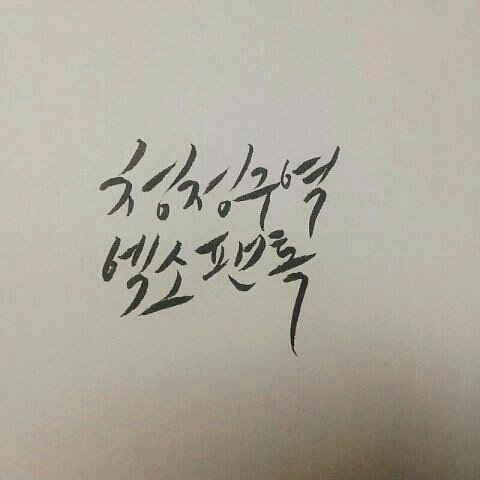 청정구역
엑소팬톡